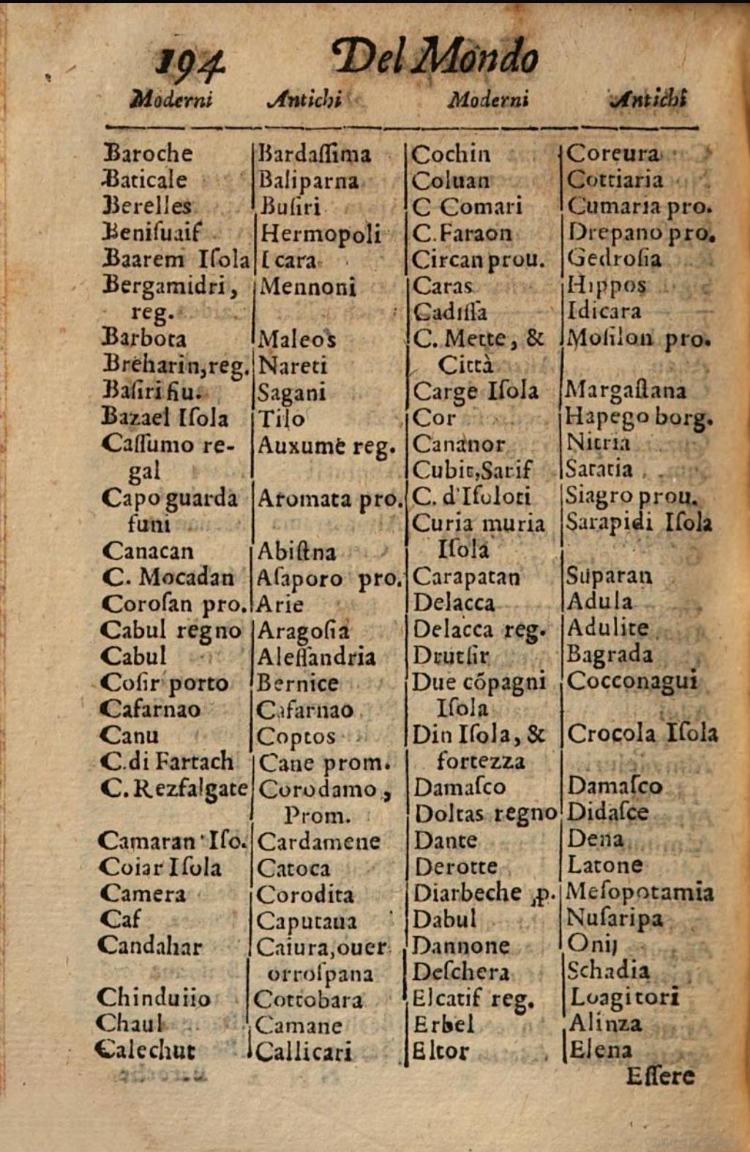 194 Del Mondo
Moderni Antichi Moderni Antichi
Baroche Bardaſſima
Baticale Baliparna
Berelles Buſiri
Beniſuaif Hermopoli
Baarem Iſola Icara
Bergamidri, Mennoni
reg.
Barbota Maleos
Breharin,reg. Nareti
Baſiri fiu. Sagani
Bazael Iſola Tilo
Caſſumo re- Auxume reg.
gal
Capo guarda Aromata pro.
funi
Canacan Abiſtna
C. Mocadan Aſaporo pro.
Coroſan pro. Arie
Cabul regno Aragoſia
Cabul Aleſſandria
Coſir porto Bernice
Cafarnao Cafarnao
Canu Coptos
C.di Fartach Cane prom.
C.Rezfalgate Corodamo,
Prom.
Camaran Iſo. Cardamene
Coiar Iſola Catoca
Camera Corodita
Caf Caputaua
Candahar Caiura,ouer
orroſpana
Chinduiio Cottobara
Chaul Camane
Calechut Callicari
Cochin Coreura
Coluan Cottiaria
C Comari Cumaria pro.
C.Faraon Drepano pro.
Circan prou. Gedroſia
Caras Hippos
Cadiſſa Idicara
C. Mette, & Moſilon pro.
Città
Carge Iſola Margaſtana
Cor Hapego borg.
Cananor Nitria
Cubit,Sarif Sataria
C. d'Iſoloti Siagro prou.
Curia muria Sarapidi Iſola
Iſola
Carapatan Suparan
Delacca Adula
Delacca reg. Adulite
Drutſir Bagrada
Due cōpagni Cocconagui
Iſola
Din Iſola, & Crocola Iſola
fortezza
Damaſco Damaſco
Doltas regno Didaſce
Dante Dena
Derotte Latone
Diarbeche ,p. Meſopotamia
Dabul Nuſaripa
Dannone Onij
Deſchera Schadia
Elcatif reg. Loagitori
Erbel Alinza
Eltor Elena
Eſſere